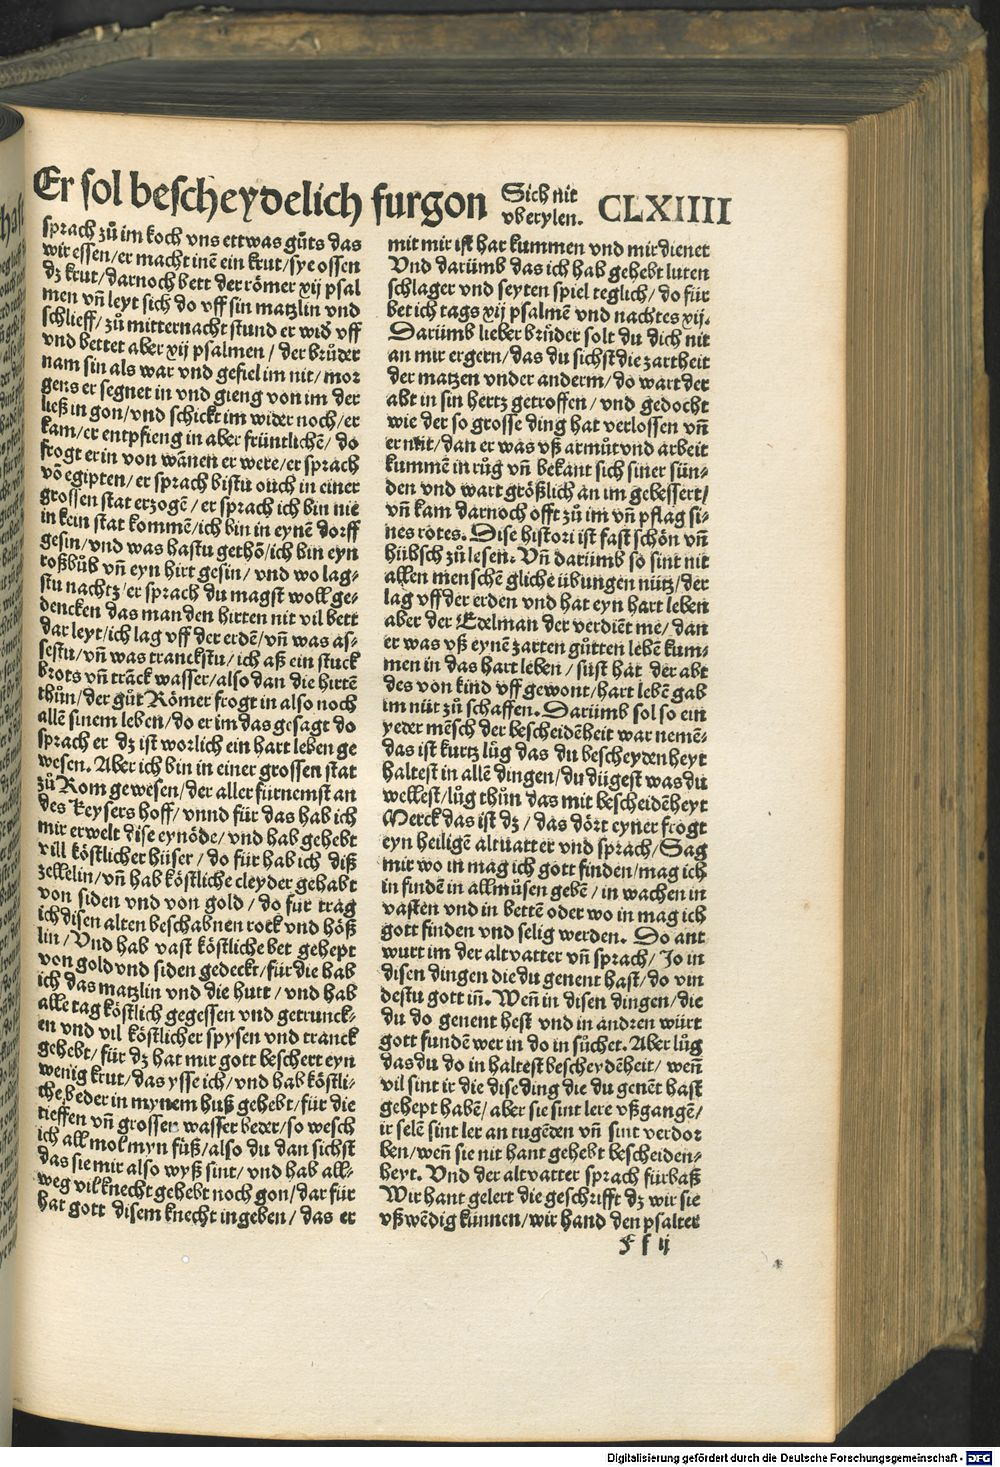 Er sol bescheydelich furgon Sich nit vberylen. CLXIIII
sprach zů im koch vns ettwas gůts das
wir essen/er macht inē ein krut/sye ossen
dz krut/darnoch bett der römer xij psal
men vñ leyt sich do vff sin matzlin vnd
schlieff/zů mitternacht stund er wid̄ vff
vnd bettet aber xij psalmen/der brůder
nam sin als war vnd gefiel im nit/mor
gens er segnet in vnd gieng von im der
ließ in gon/vnd schickt im wider noch/er
kam/er entpfieng in aber früntlichē/do
frogt er in von wānen er were/er sprach
vō egipten/er sprach bistu ouch in einer
grossen stat erzogē/er sprach ich bin nie
in kein stat kommē/ich bin in eynē dorff
gesin/vnd was hastu gethō/ich bin eyn
roßbůb vñ eyn hirt gesin/vnd wo lag-
stu nachtz/er sprach du magst woll ge-
dencken das man den hirten nit vil bett
dar leyt/ich lag vff der erdē/vñ was as-
sestu/vñ was tranckstu/ich aß ein stuck
brots vñ trāck wasser/also dan die hirtē
thůn/der gůt Römer frogt in also noch
allē sinem leben/do er im das gesagt do
sprach er dz ist worlich ein hart leben ge
wesen. Aber ich bin in einer grossen stat
zů Rom gewesen/der aller fürnemst an
des keysers hoff/vnnd für das hab ich
mir erwelt dise eynöde/vnd hab gehebt
vill köstlicher hüser/do für hab ich diß
zellelin/vñ hab köstliche cleyder gehabt
von siden vnd von gold/do für trag
ich disen alten beschabnen rock vnd höß
lin/Vnd hab vast köstliche bet gehept
von gold vnd siden gedeckt/für die hab
ich das matzlin vnd die hutt/vnd hab
alle tag köstlich gegessen vnd getrunck-
en vnd vil köstlicher spysen vnd tranck
gehebt/für dz hat mir gott beschert eyn
wenig krut/das ysse ich/vnd hab köstli-
che beder in mynem huß gehebt/für die
tieffen vñ grossen wasser beder/so wesch
ich all mol myn füß/also du dan sichst
das sie mir also wyß sint/vnd hab all-
weg vil knecht gehebt noch gon/dar für
hat gott disem knecht ingeben/das er
mit mir ist har kummen vnd mir dienet
Vnd darümb das ich hab gehebt luten
schlager vnd seyten spiel teglich/do für
bet ich tags xij psalmē vnd nachtes xij.
Darümb lieber brůder solt du dich nit
an mir ergern/das du sichst die zartheit
der matzen vnder anderm/do wart der
abt in sin hertz getroffen/vnd gedocht
wie der so grosse ding hat verlossen vñ
er nit/dan er was vß armůt vnd arbeit
kummē in růg vñ bekant sich siner sün-
den vnd wart größlich an im gebessert/
vñ kam darnoch offt zů im vñ pflag si-
nes rotes. Dise histori ist fast schön vñ
hübsch zů lesen. Vñ darümb so sint nit
allen menschē gliche übungen nütz/der
lag vff der erden vnd hat eyn hart leben
aber der Edelman der verdiēt me/dan
er was vß eynē zarten gůtten lebē kum-
men in das hart leben/süst hat der abt
des von kind vff gewont/hart lebē gab
im nüt zů schaffen. Darümb sol so ein
yeder mēsch der bescheidēheit war nemē-
das ist kurtz lůg das du bescheydenheyt
haltest in allē dingen/du dügest was du
wellest/lůg thůn das mit bescheidēheyt
Merck das ist dz/das dört eyner frogt
eyn heiligē altuatter vnd sprach/Sag
mir wo in mag ich gott finden/mag ich
in findē in allmůsen gebē/in wachen in
vasten vnd in bettē oder wo in mag ich
gott finden vnd selig werden. Do ant
wurt im der altvatter vñ sprach/Jo in
disen dingen die du genent hast/do vin
destu gott iñ. Weñ in disen dingen/die
du do genent hest vnd in andren würt
gott fundē wer in do in sůchet. Aber lůg
das du do in haltest bescheydēheit/weñ
vil sint ir die dise ding die du genēt hast
gehept habē/aber sie sint lere vßgangē/
ir selē sint ler an tugēden vñ sint verdor
ben/weñ sie nit hant gehebt bescheiden-
heyt. Vnd der altvatter sprach fürbaß
Wir hant gelert die geschrifft dz wir sie
vßwēdig künnen/wir hand den psalter
F f ij
Digitalisierung gefördert durch die Deutsche Forschungsgemeinschaft - DFG